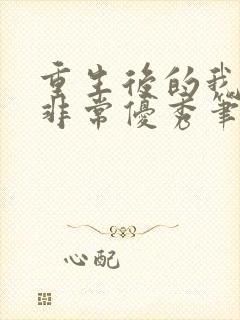 重生後的我
非常優秀筆
心配